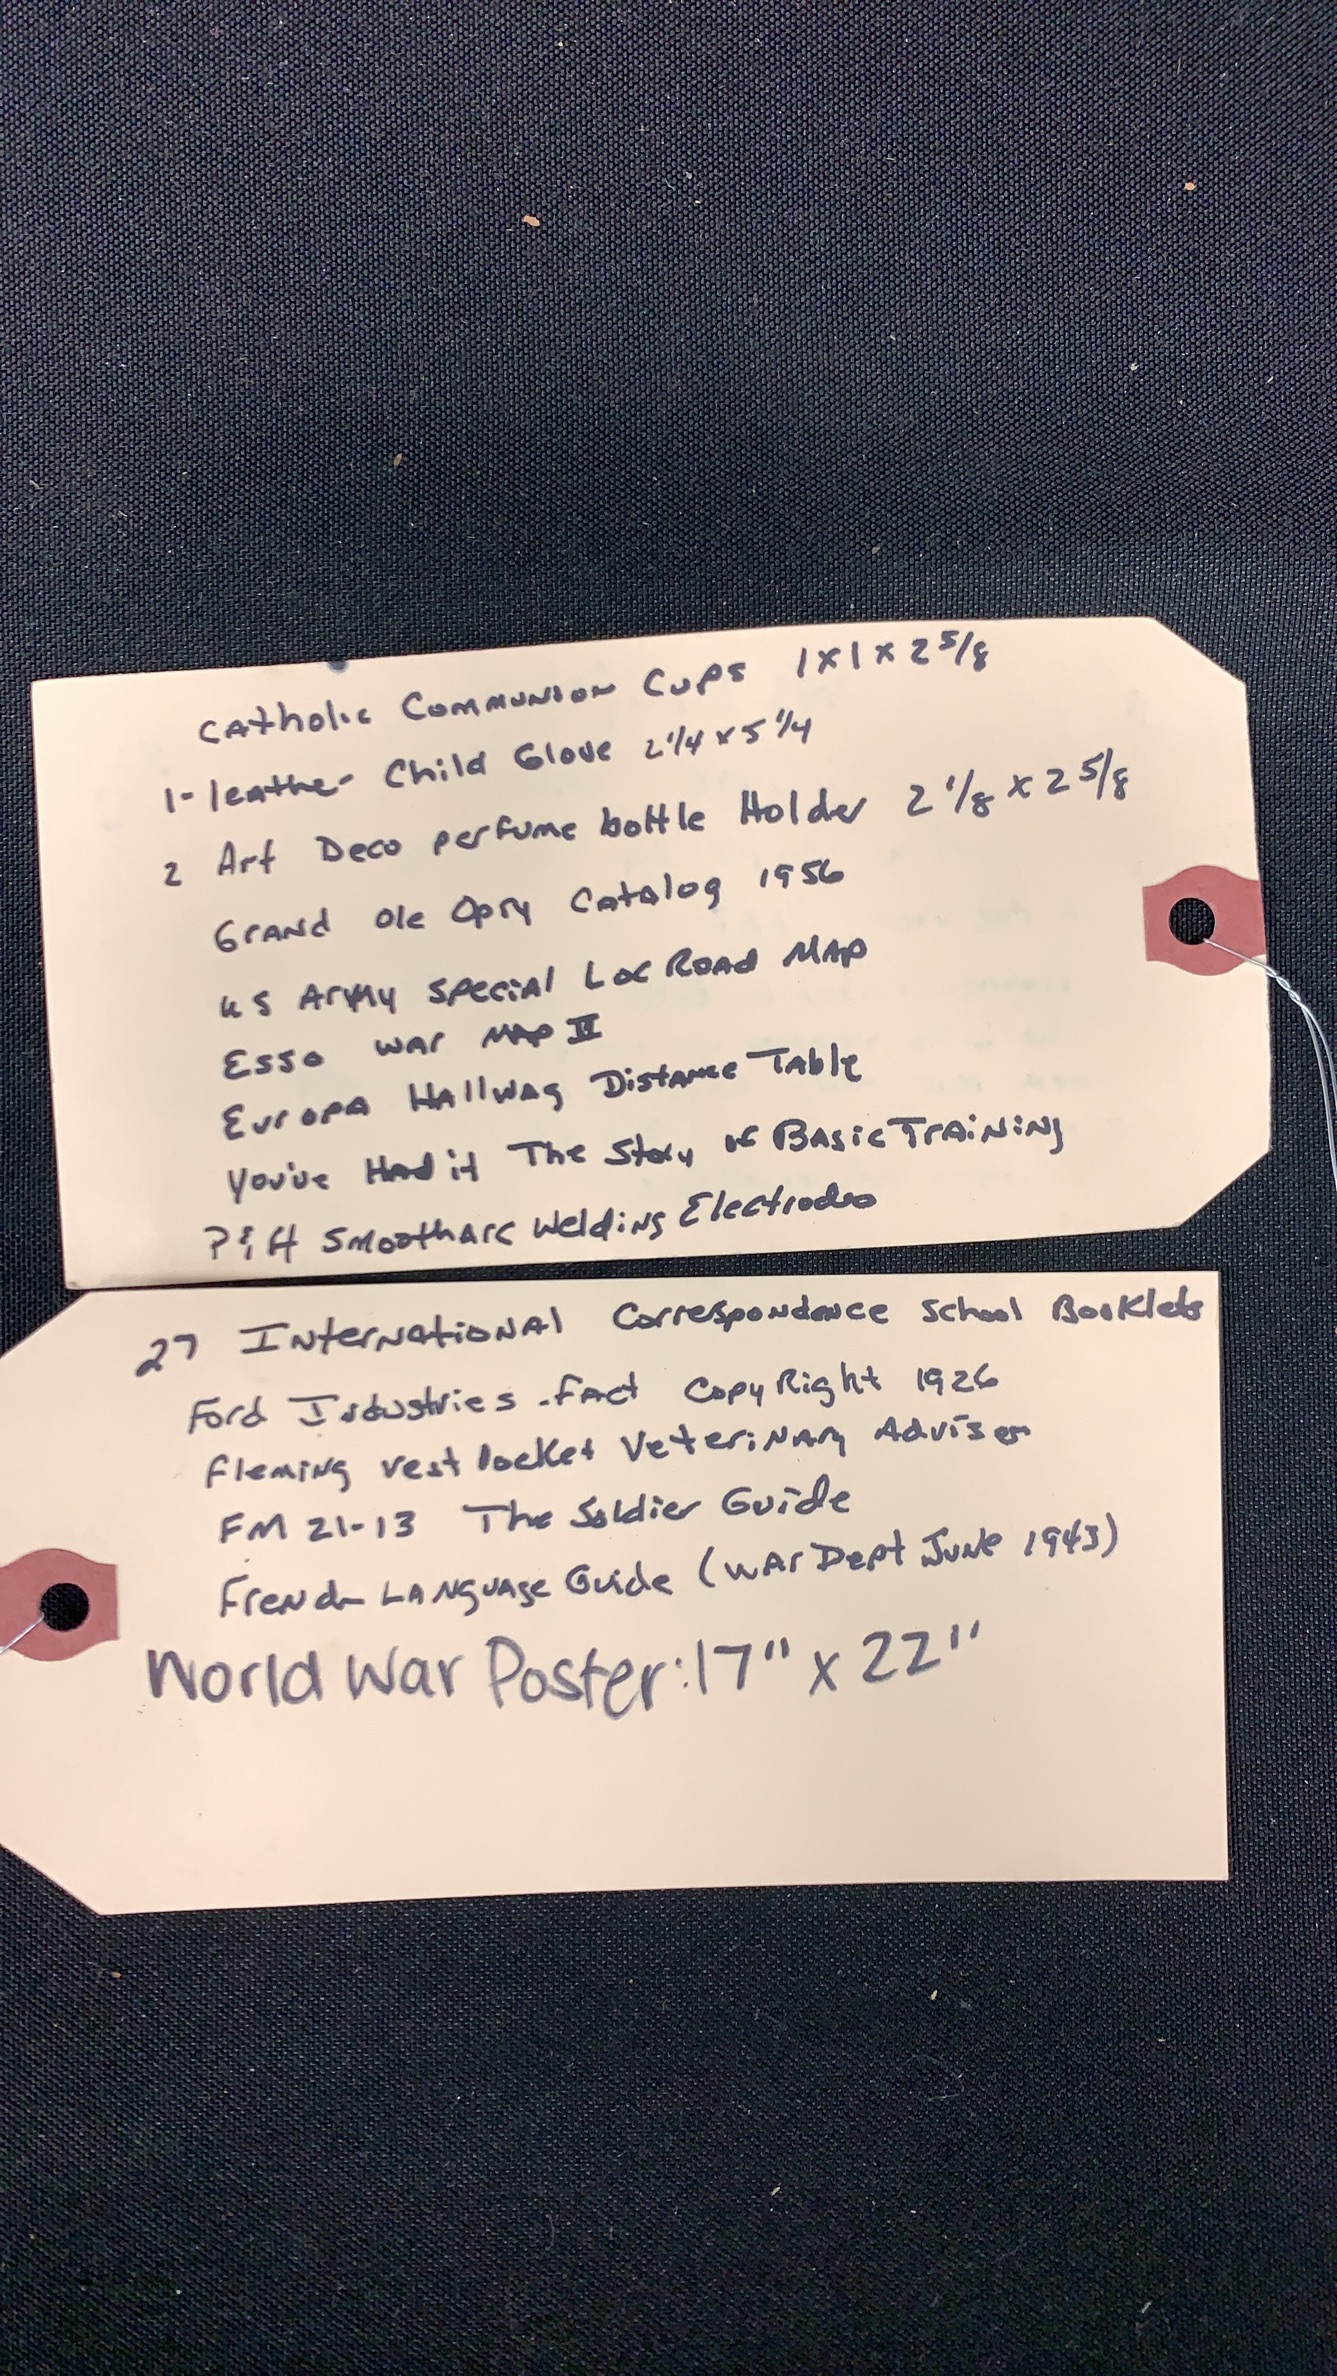 Catholic Communion Cups 1x1x2 5/8
1- leather Child Glove 2 1/4 x 5 1/4
2 Art Deco perfume bottle Holder 2 1/8 x 2 5/8
Grand Ole Opry Catalog 1956
US Army Special Loc Road Map
Esso war Map II
Europa Hallwag Distance Table
You've Had it The Story of Basic Training
P&H Smootharc Welding Electrodes
27 International Correspondence School Booklets
Ford Industries. Fact Copy Right 1926
Fleming vest Pocket Veterinary Adviser
FM 21-13 The Soldier Guide
French Language Guide (War Dept June 1943)
World War Poster: 17" x 22"